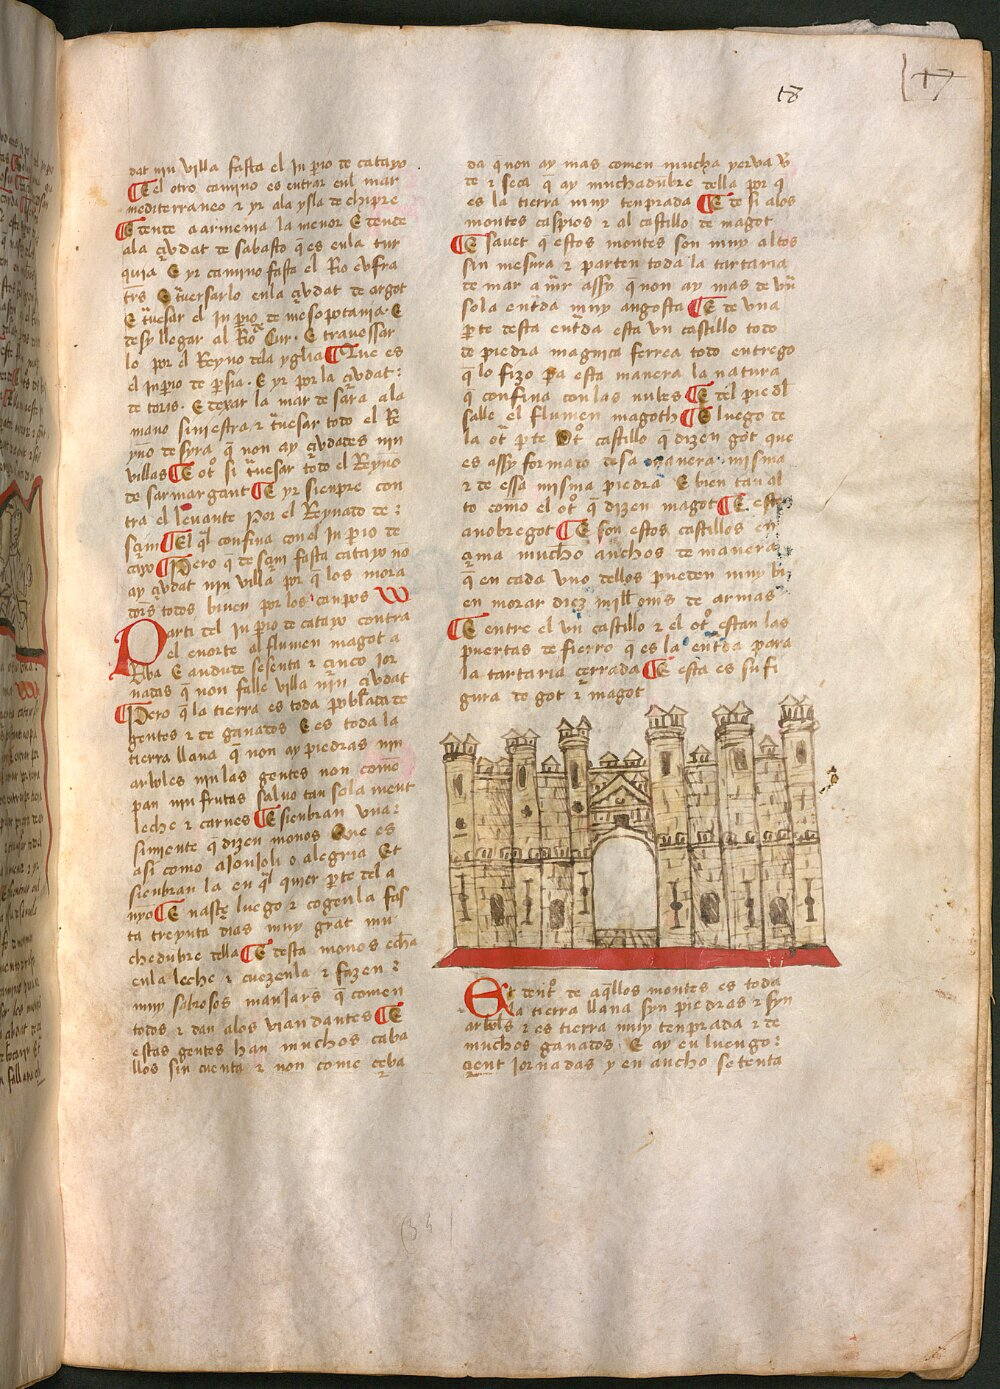 18
17
dat nin villa fasta el Inperio de catayo
E el otro camino es entrar enl mar
mediterraneo τ yr ala ysla de chipre
E dende a armenia la menor E dende
ala çiudat de sabasto q̄ es enla tur
quia E yr camino fasta el Rio eufra
E tͥuesarlo enla çiudat de argot
E tͥuesar el Inꝑio de mesopotania. E
desy llegar al Rio E trauessar
lo por el Reyno dela yglia Que es
el Inꝑio de ꝑsia. E yr por la çiudat:
de toris. E dexar la mar de sara ala
mano siniestra τ tͥuesar todo el Re
yno de syra q̄ non ay çiudades nin
villas E otͦ si tͥuesar todo el Reyno
de sarmargant E yr sienpre con
tra el leuante Por el Reynado de:
scim El q̄l confina con el Inꝑio de
cayo Pero q̄ de scim fasta catayo no
ay çiudat nin villa por q̄ los mora
dors todos biuen por los canpos
Parti del Inꝑio de catayo contra
el enorte al flumen magot a
Riba E andude sesenta τ çinco Jor
nadas q̄ non falle villa nin çiudat
Pero q̄ la tierra es toda poblada de
gentes τ de ganados E es toda la
tierra llana q̄ non ay piedras nin
arboles nin las gentes non come
pan nin frutas saluo tan sola ment
leche τ carnes E sienbran vna:
simiente q̄ dizen monos Que es
asi como aJonJoli o alegria Et
sienbran la en q̄l quier ꝑte del a
nyo E nasçe luego τ cogenla fas
ta treynta dias muy grat mu
chedubre della E desta monos echā
enla leche τ cuezenla τ fazen:
muy sabrosos manJars q̄ comen
todos τ dan alos viandantes E
estas gentes han muchos caba
llos sin cuenta τ non come çeba
da q non ay mas comen mucha yerua v̄
de τ seca q̄ ay muchadubre della por q̄
es la tierra muy tenprada E de si alos
montes caspios τ al castillo de magot
E sauet q̄ estos montes son muy altos
sin mesura τ parten toda la tartaria
de mar a mͥr assy q̄ non ay mas de vn̄
sola entͣda muy angosta E de vna
ꝑte desta entͣda esta vn castillo todo
de piedra magnica ferrea todo entrego
q̄ lo fizo desta manera la natura
q̄ confina con las nubes E del pie dl
salle el flumen magoth E luego de
la otͣ ꝑte otͦ castillo q̄ dizen got que
es assy formado desa manera misma
τ de essa misma piedra E bien tan al
to como el otͦ q̄ dizen magot E este
an obre got E son estos castillos en
çima mucho anchos de manera
q̄ en cada vno dellos pueden muy bi
en morar diez mill oms de armas
E entre el vn castillo τ el otͦ estan las
puertas de fierro q̄ es la entͣda para
la tartaria çerrada E esta es su fi
gura de got τ magot
Et dentͦ de aq̄llos montes es toda
la tierra llana syn piedras τ syn
arbols τ es tierra muy tenprada τ de
muchos ganados E ay en luengo:
çient Jornadas y en ancho setenta
(34)